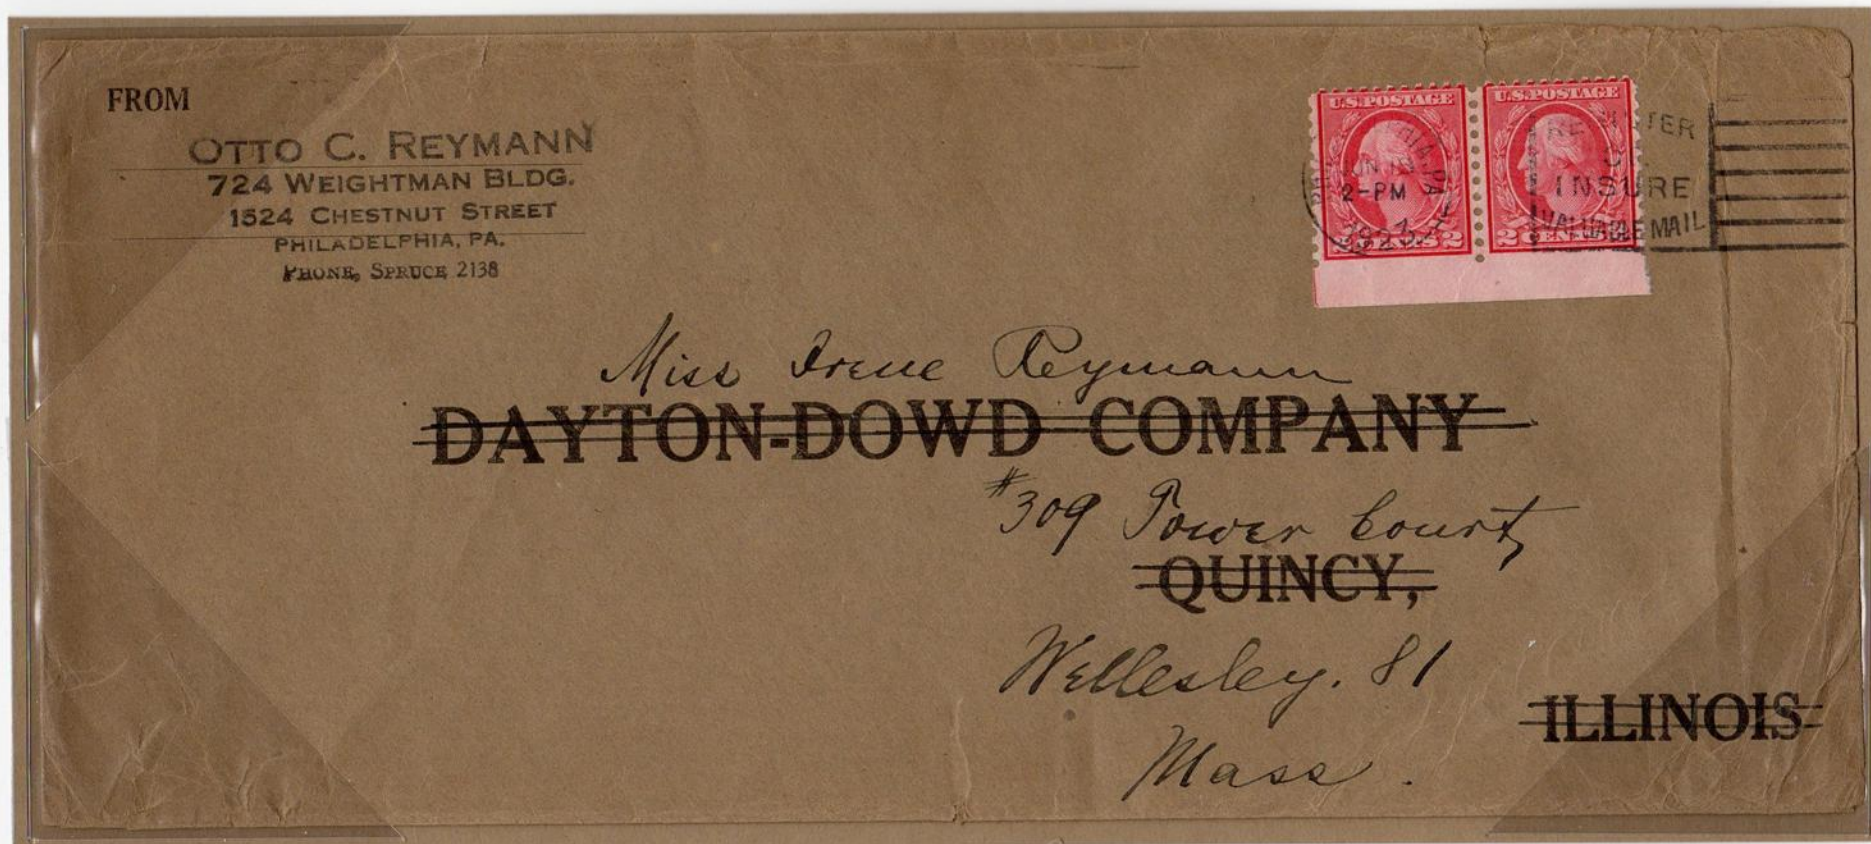 FROM
OTTO C. REYMANN
724 WEIGHTMAN BLDG.
1524 CHESTNUT STREET
PHILADELPHIA, PA.
PHONE, SPRUCE 2138
U.S. POSTAGE U.S. POSTAGE
2-PM
1923
2 CENTS 2
REGISTER
OR
INSURE
VALUABLE MAIL
Miss Irene Reymann
DAYTON-DOWD COMPANY
#309 Tower Court,
QUINCY,
Wellesley. 81
ILLINOIS
Mass.